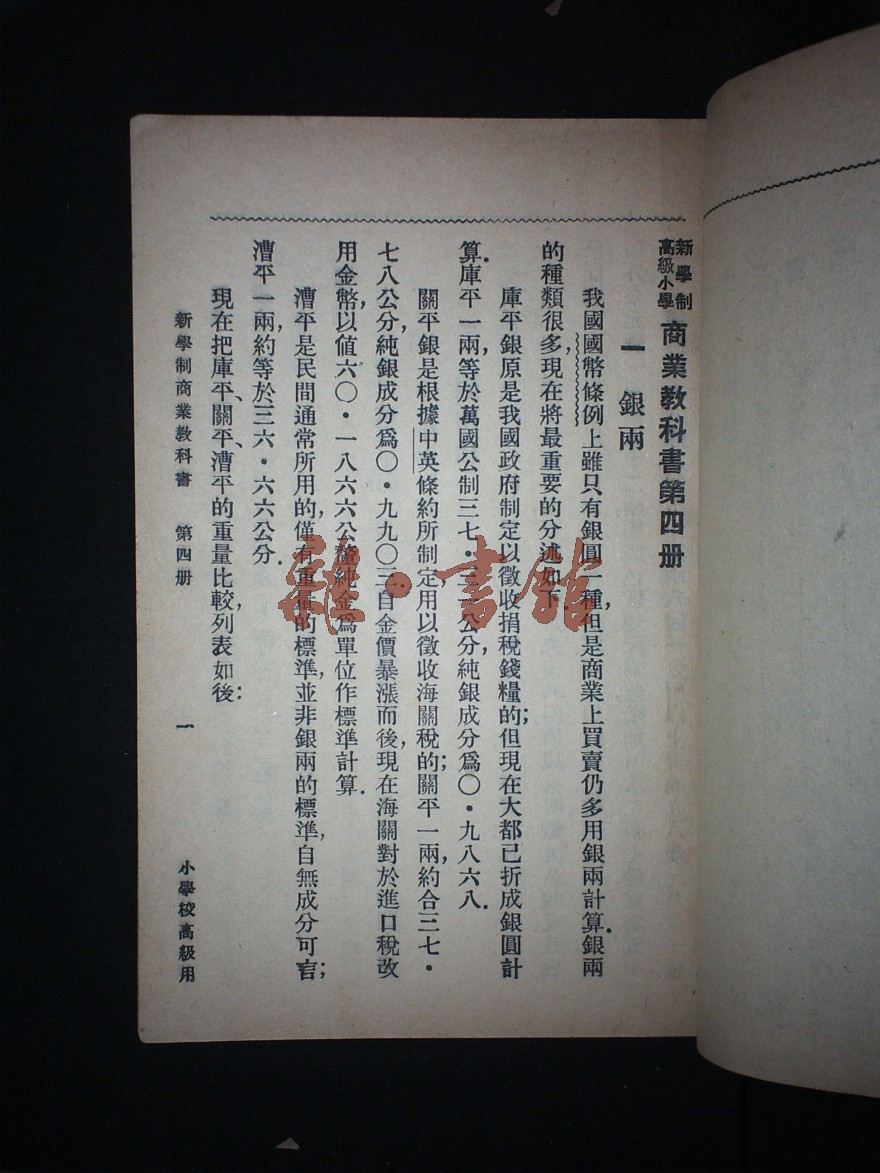 新學制
高級小學
商業教科書第四册
一　銀兩
我國國幣條例上雖只有銀圓一種,但是商業上買賣仍多用銀兩計算.銀兩
的種類很多,現在將最重要的分述如下.
庫平銀原是我國政府制定以徵收捐稅錢糧的;但現在大都已折成銀圓計
算.庫平一兩,等於萬國公制三七·三一公分,純銀成分爲〇·九八六八.
關平銀是根據中英條約所制定,用以徵收海關稅的;關平一兩,約合三七·
七八公分,純銀成分爲〇·九九〇三.自金價暴漲而後,現在海關對於進口稅改
用金幣,以値六〇·一八六六公釐純金爲單位作標準計算.
漕平是民間通常所用的,僅有重量的標準,並非銀兩的標準,自無成分可言;
漕平一兩,約等於三六·六六公分.
現在把庫平、關平、漕平的重量比較,列表如後:
新學制商業教科書　第四册　一　小學校高級用
雜·書館